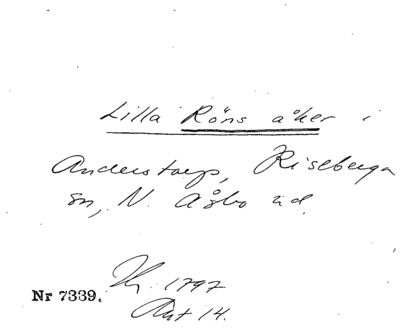 Lilla Röns åker i
Anderstorp, Riseberga
sn, N. Åsbo hd.
1797
Akt 14.
Nr 7339.